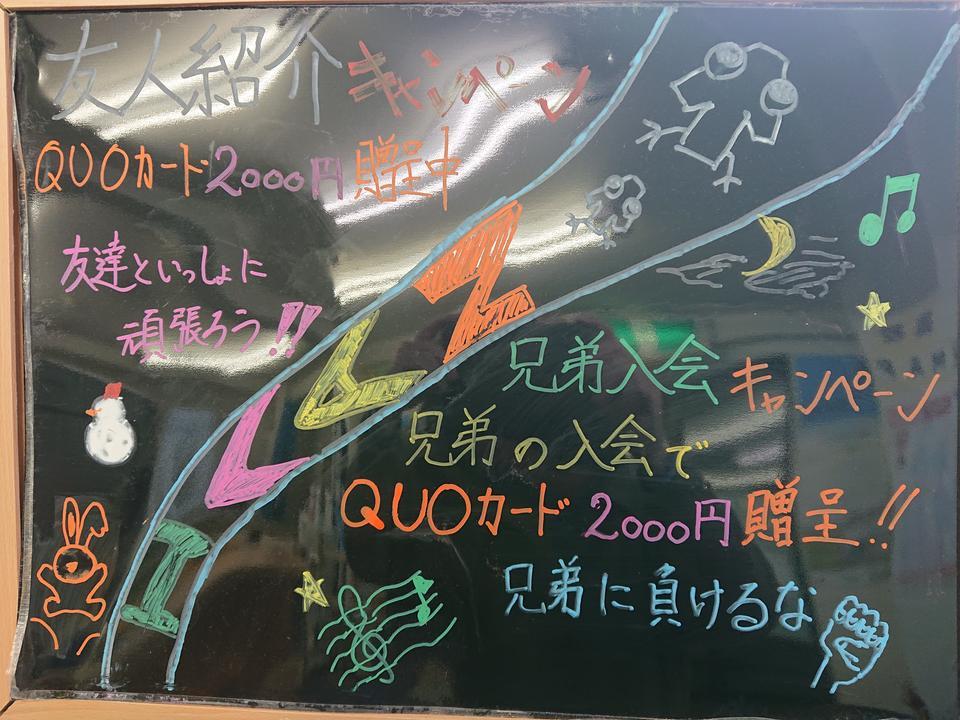 友人紹介キャンペーン
QUOカード2000円贈呈中
友達といっしょに
頑張ろう!!
兄弟入会キャンペーン
兄弟の入会で
QUOカード2000円贈呈!!
兄弟に負けるな